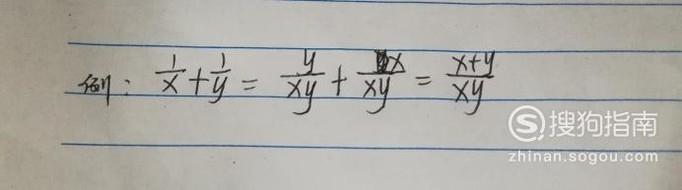 例: 1/x + 1/y = y/xy + x/xy = x+y/xy
搜狗指南
zhinan.sogou.com